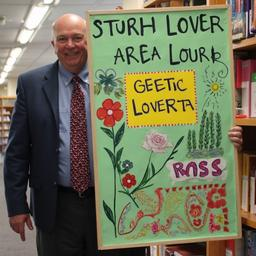 STURH LOVER
AREA LOURR
GEETIC
LOVERTA
RNSS